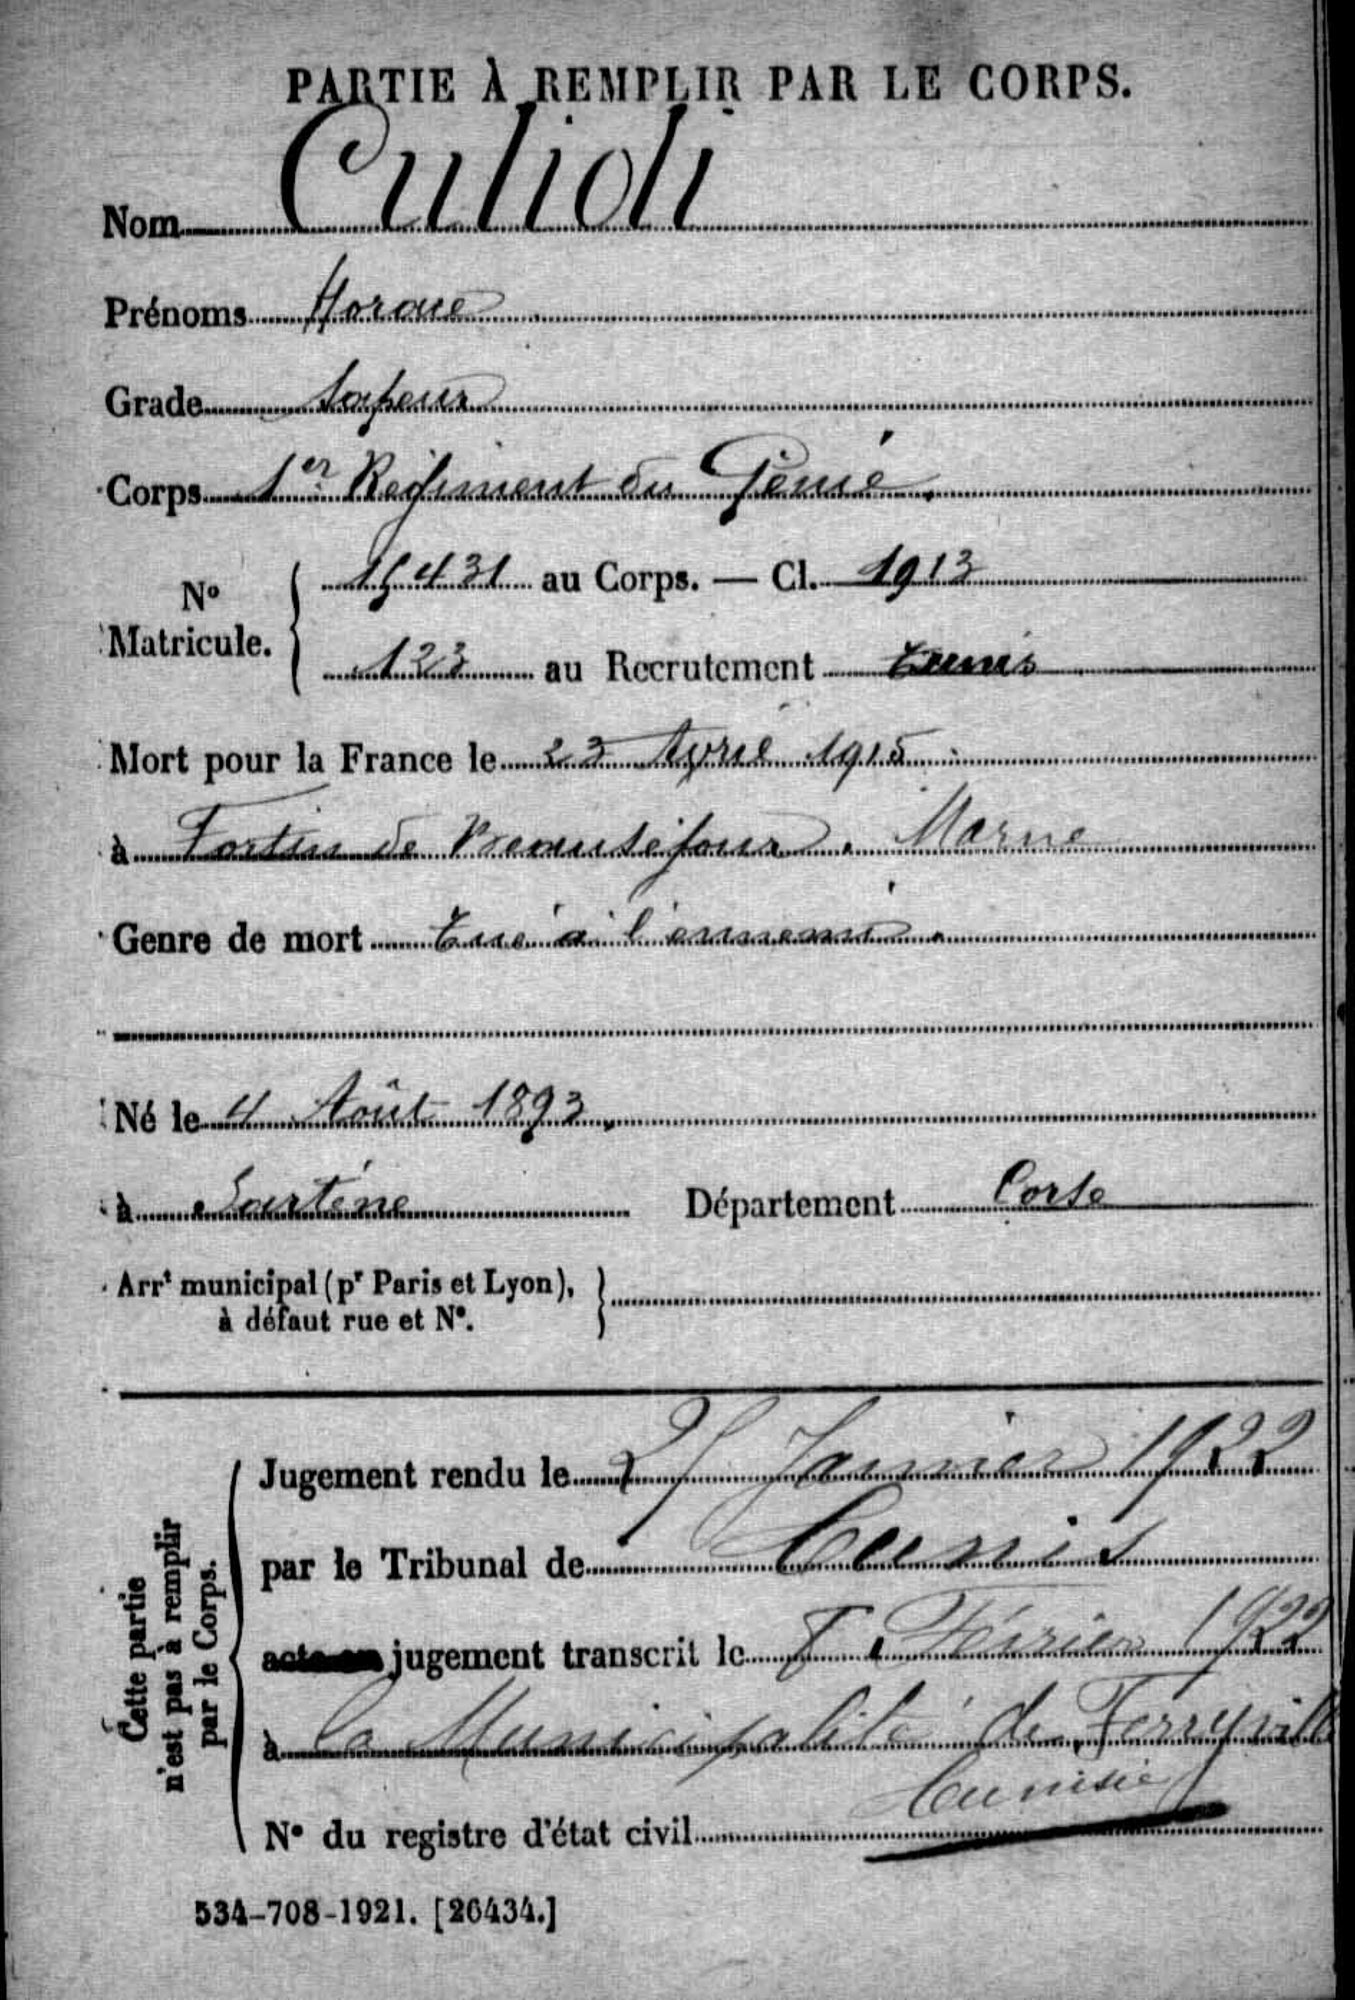 PARTIE À REMPLIR PAR LE CORPS.
Nom Culioli
Prénoms Horace
Grade Sapeur
Corps 1er Régiment du Génie.
No Matricule. { 15431 au Corps. — Cl. 1913
123 au Recrutement Tunis
Mort pour la France le 23 Avril 1915
à Fortin de Beauséjour. Marne
Genre de mort Tué à l'ennemi.
Né le 4 Août 1893.
à Sartène Département Corse
Arrt municipal (pr Paris et Lyon), }
à défaut rue et No.
Cette partie
n'est pas à remplir
par le Corps.
Jugement rendu le 25 Janvier 1922
par le Tribunal de Tunis
acte ou jugement transcrit le 8 Février 1922
à la Municipalité de Ferryville
Tunisie
No du registre d'état civil
534-708-1921. [26434.]